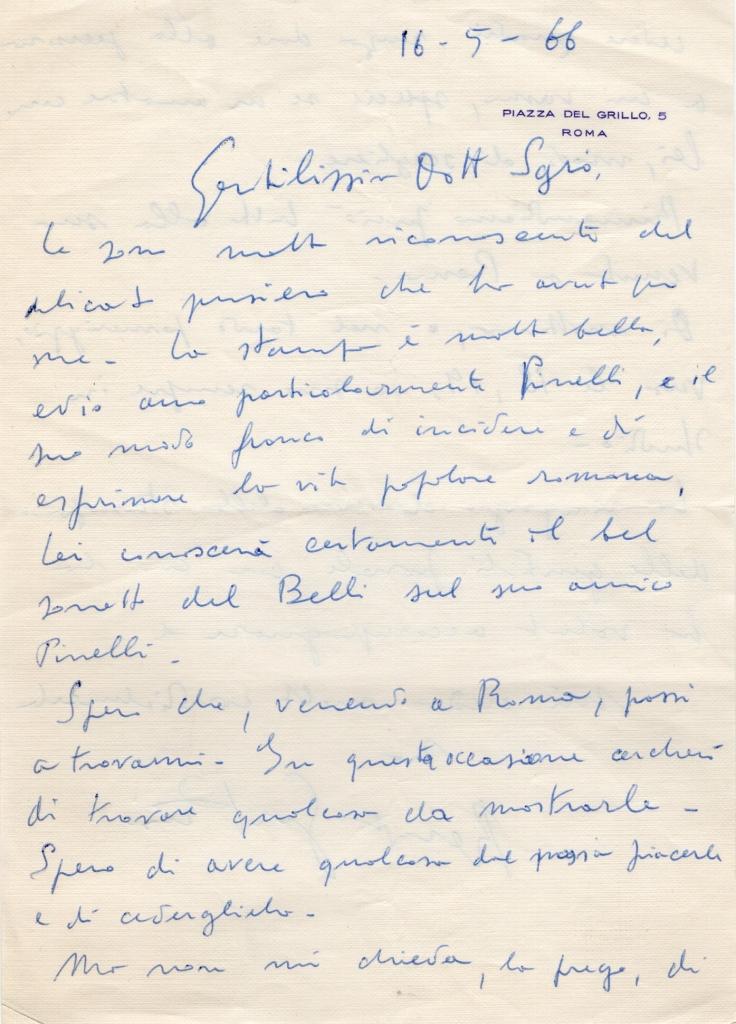 16-5-66
PIAZZA DEL GRILLO, 5
ROMA
Gentilissimo Dott Sgrò,
le sono molto riconoscente del
delicato pensiero che ha avuto per
me - La stampa è molto bella,
ed io amo particolarmente Pinelli, e il
suo modo franco di incidere e di
esprimere la vita popolare romana,
Lei conoscerà certamente il bel
sonetto del Belli sul suo amico
Pinelli -
Spero che, venendo a Roma, passi
a trovarmi - In questa occasione cercherò
di trovare qualcosa da mostrarle -
Spero di avere qualcosa che possa piacerle
e di cederglielo -
Ma non mi chieda, la prego, di